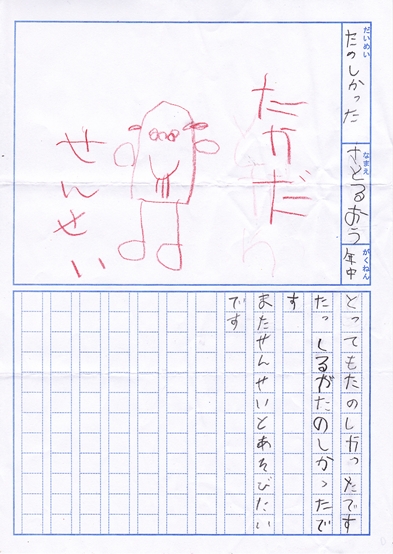 だいめい
たのしかった
なまえ
さとるおう
がくねん
年中
たかだ
せんせい
とってもたのしかったです
たっしるがたのしかったで
す
またせんせいとあそびたい
です